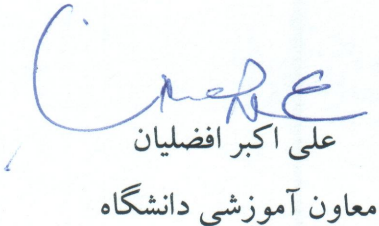 علی اکبر افضلیان
معاون آموزشی دانشگاه